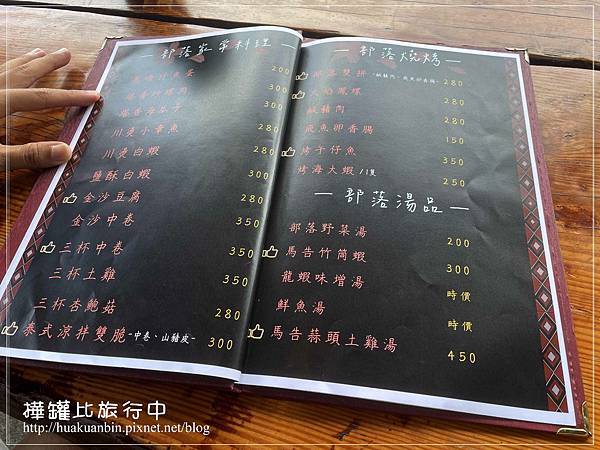 部落家常料理
200
塔香炒螺肉 300
塔香海瓜子 300
川燙小章魚 280
川燙白蝦 280
鹽酥白蝦 300
金沙豆腐 280
金沙中卷 350
三杯中卷 350
三杯土雞 350
三杯杏鮑菇 280
泰式涼拌雙脆 -中卷、山豬皮- 300
部落燒烤
部落雙拼 -鹹豬肉、飛魚卵香腸- 280
火焰鳳螺 280
鹹豬肉 280
飛魚卵香腸 150
烤午仔魚 350
烤海大蝦/1隻 250
部落湯品
部落野菜湯 200
馬告竹筒蝦 300
龍蝦味增湯 時價
鮮魚湯 時價
馬告蒜頭土雞湯 450
擇罐比旅行中
http://huakuanbin.pixnet.net/blog